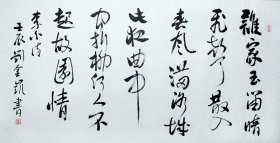 誰家玉笛暗
飛聲散入
春風滿洛城
此夜曲中
聞折柳何人不
起故園情
李白詩
壬辰劉金書